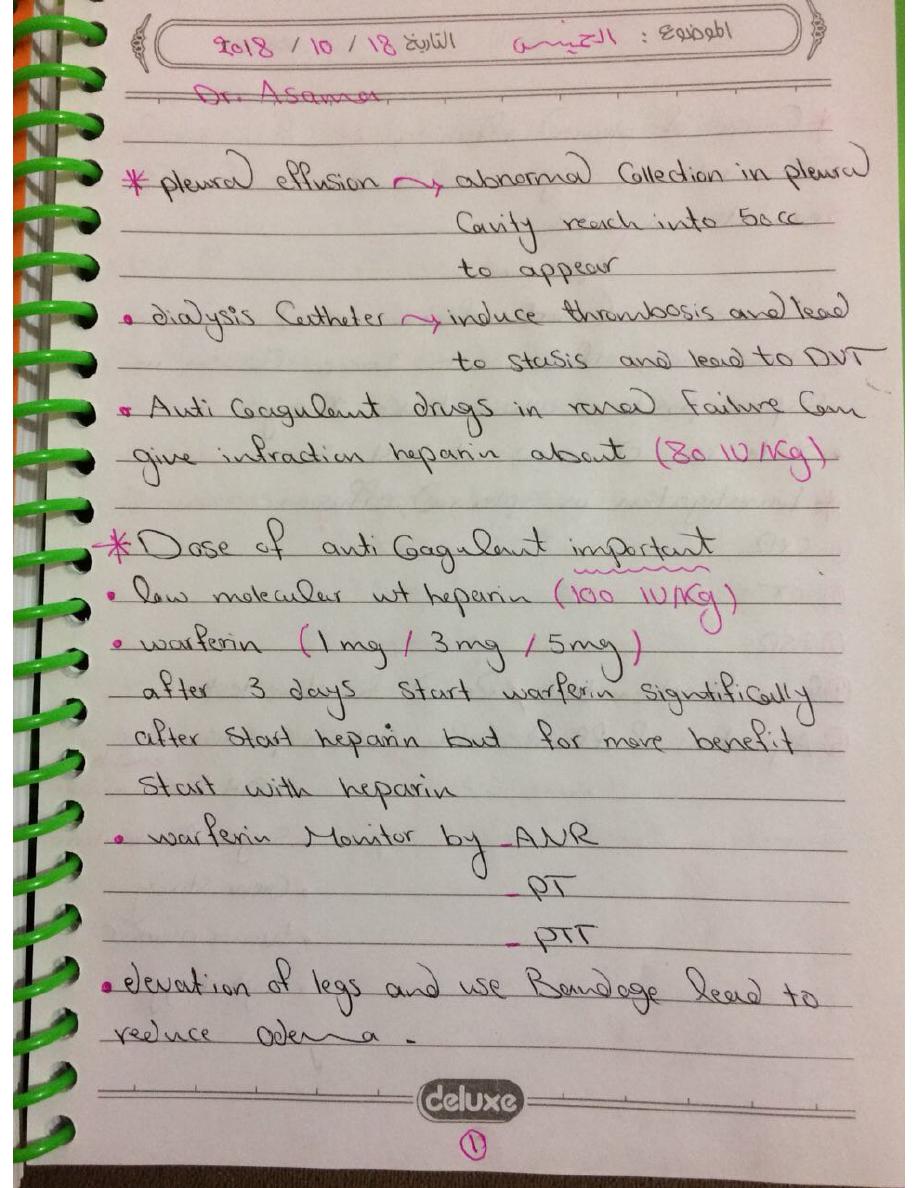 الموضوع : الخميس التاريخ 2018 / 10 / 18
Dr. Asamer
* pleural effusion → abnormal Collection in pleural
Cavity reach into 50cc
to appear
• dialysis Catheter → induce thrombosis and lead
to stasis and lead to DVT
• Anti Coagulant drugs in renal Failure Can
give infraction heparin about (80 IU/Kg)
* Dose of anti Coagulant important
• low molecular wt heparin (100 IU/Kg)
• warferin (1 mg / 3 mg / 5 mg)
after 3 days start warferin signtifically
after start heparin but for more benefit
start with heparin
• warferin Monitor by - ANR
- PT
- PTT
• elevation of legs and use Bandage lead to
reduce odema .
deluxe
1